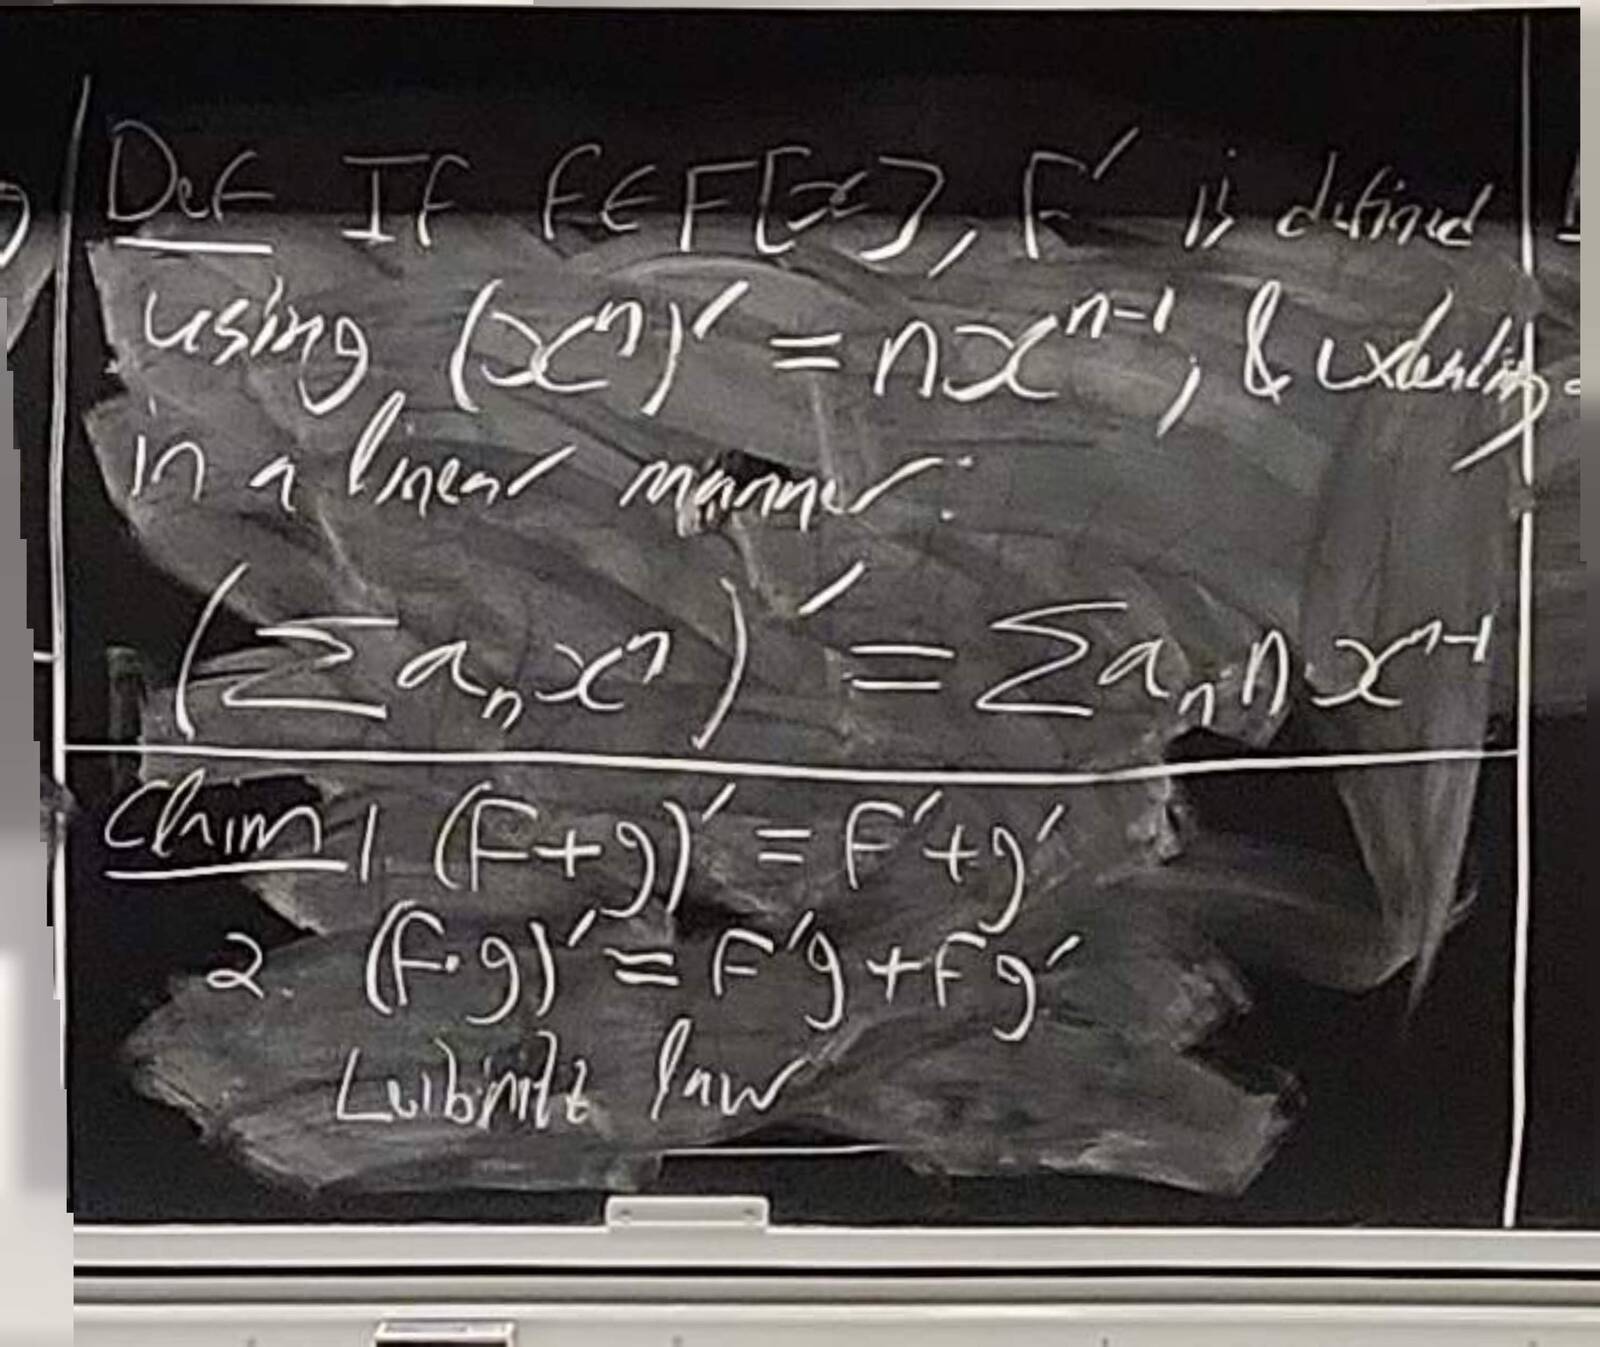 Def If f ∈ F[x], f′ is defined
using (xⁿ)′ = nxⁿ⁻¹, & extending
in a linear manner:
(∑ aₙxⁿ)′ = ∑ aₙ n xⁿ⁻¹
Claim 1 (f+g)′ = f′+g′
2. (f·g)′ = f′g + fg′
Leibnitz law